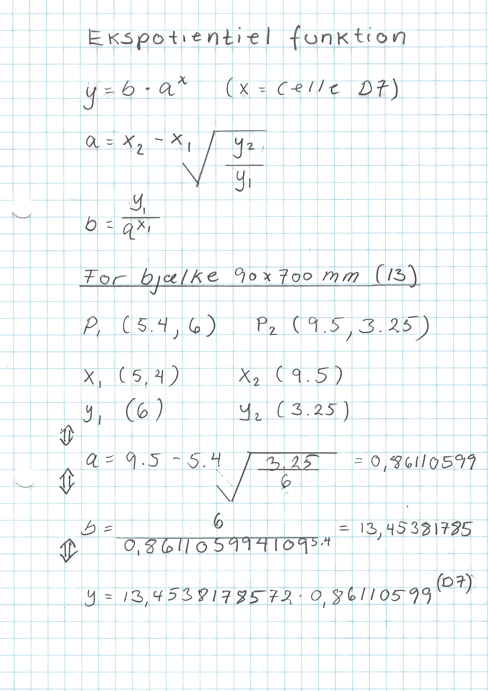 Ekspotientiel funktion
y = b · aˣ (x = Celle D7)
a = x₂ - x₁ √ y₂ / y₁
b = y₁ / aˣ¹
For bjælke 90x700 mm (13)
P₁ (5.4, 6) P₂ (9.5, 3.25)
x₁ (5,4) x₂ (9.5)
y₁ (6) y₂ (3.25)
⇕
a = 9.5 - 5.4 √ 3,25 / 6 = 0,86110599
⇕
b = 6 / 0,861105994109^5.4 = 13,45381785
⇕
y = 13,4538178572 · 0,86110599^(D7)